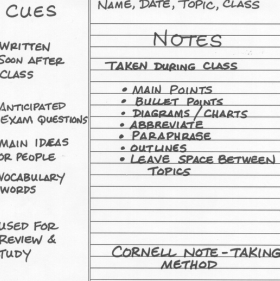 NAME, DATE, TOPIC, CLASS
CUES
WRITTEN
SOON AFTER
CLASS
ANTICIPATED
EXAM QUESTIONS
MAIN IDEAS
OR PEOPLE
VOCABULARY
WORDS
USED FOR
REVIEW &
STUDY
NOTES
TAKEN DURING CLASS
• MAIN POINTS
• BULLET POINTS
• DIAGRAMS / CHARTS
• ABBREVIATE
• PARAPHRASE
• OUTLINES
• LEAVE SPACE BETWEEN
TOPICS
CORNELL NOTE-TAKING
METHOD